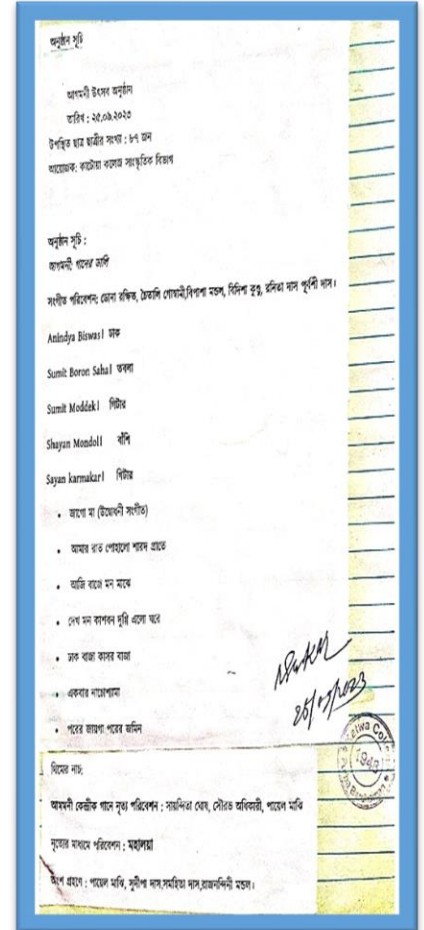 অনুষ্ঠান সূচি
আগমনী উৎসব অনুষ্ঠান
তারিখ : ২৫.০৯.২০২৩
উপস্থিত ছাত্র ছাত্রীর সংখ্যা : ৮৭ জন
আয়োজক: কাটোয়া কলেজ সাংস্কৃতিক বিভাগ
অনুষ্ঠান সূচি :
আগমনী: গানের ডালি
সংগীত পরিবেশন: ডোনা রক্ষিত, চৈতালি গোস্বামী,বিপাশা মন্ডল, বিদিশা কুণ্ডু, রনিতা দাস পূর্বশী দাস।
Anindya Biswas। ঢাক
Sumit Boron Saha। তবলা
Sumit Moddek। গিটার
Shayan Mondol। বাঁশি
Sayan karmakar। গিটার
• জাগো মা (উদ্বোধনী সংগীত)
• আমার রাত পোহালো শারদ প্রাতে
• আজি বাজে মন মাঝে
• দেখ মন কাশবন দুগ্গি এলো ঘরে
• ঢাক বাজা কাসর বাজা
• একবার নাচোশ্যামা
• পরের জায়গা পরের জমিন
25/09/2023
Katwa Col
1948
থিমের নাচ:
আগমনী কেন্দ্রীক গানে নৃত্য পরিবেশন : সায়ন্দিতা ঘোষ, সৌরভ অধিকারী, পায়েল মাঝি
নৃত্যের মাধ্যমে পরিবেশন : মহালয়া
অংশ গ্রহণে : পায়েল মাঝি, সুনীপা দাস,সমহিতা দাস,রাজনন্দিনী মন্ডল।